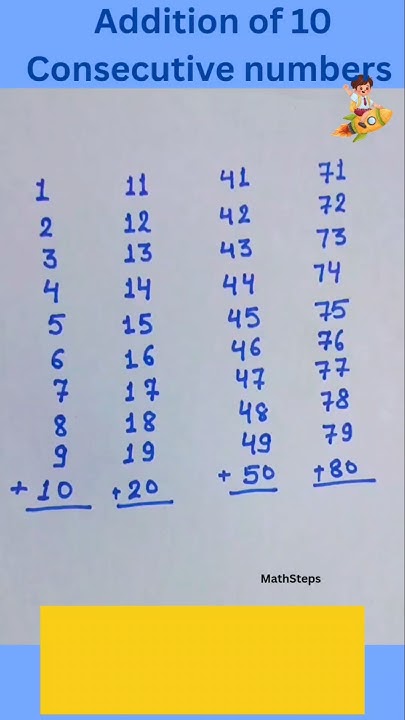 Addition of 10
Consecutive numbers
1 11 41 71
2 12 42 72
3 13 43 73
4 14 44 74
5 15 45 75
6 16 46 76
7 17 47 77
8 18 48 78
9 19 49 79
+ 10 + 20 + 50 + 80
MathSteps